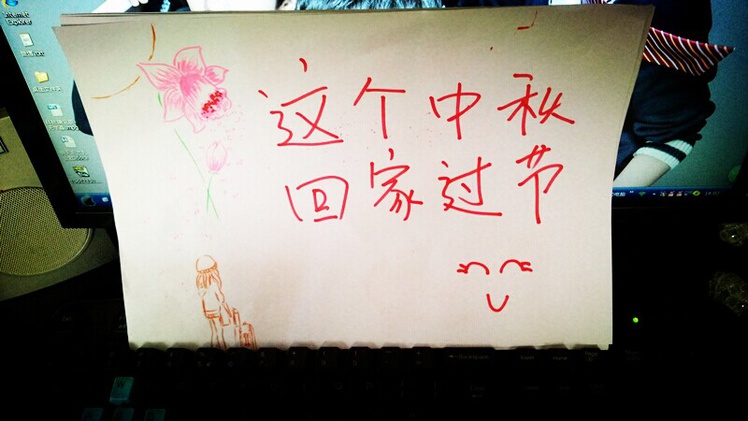 Internet
Explorer
这个中秋
回家过节